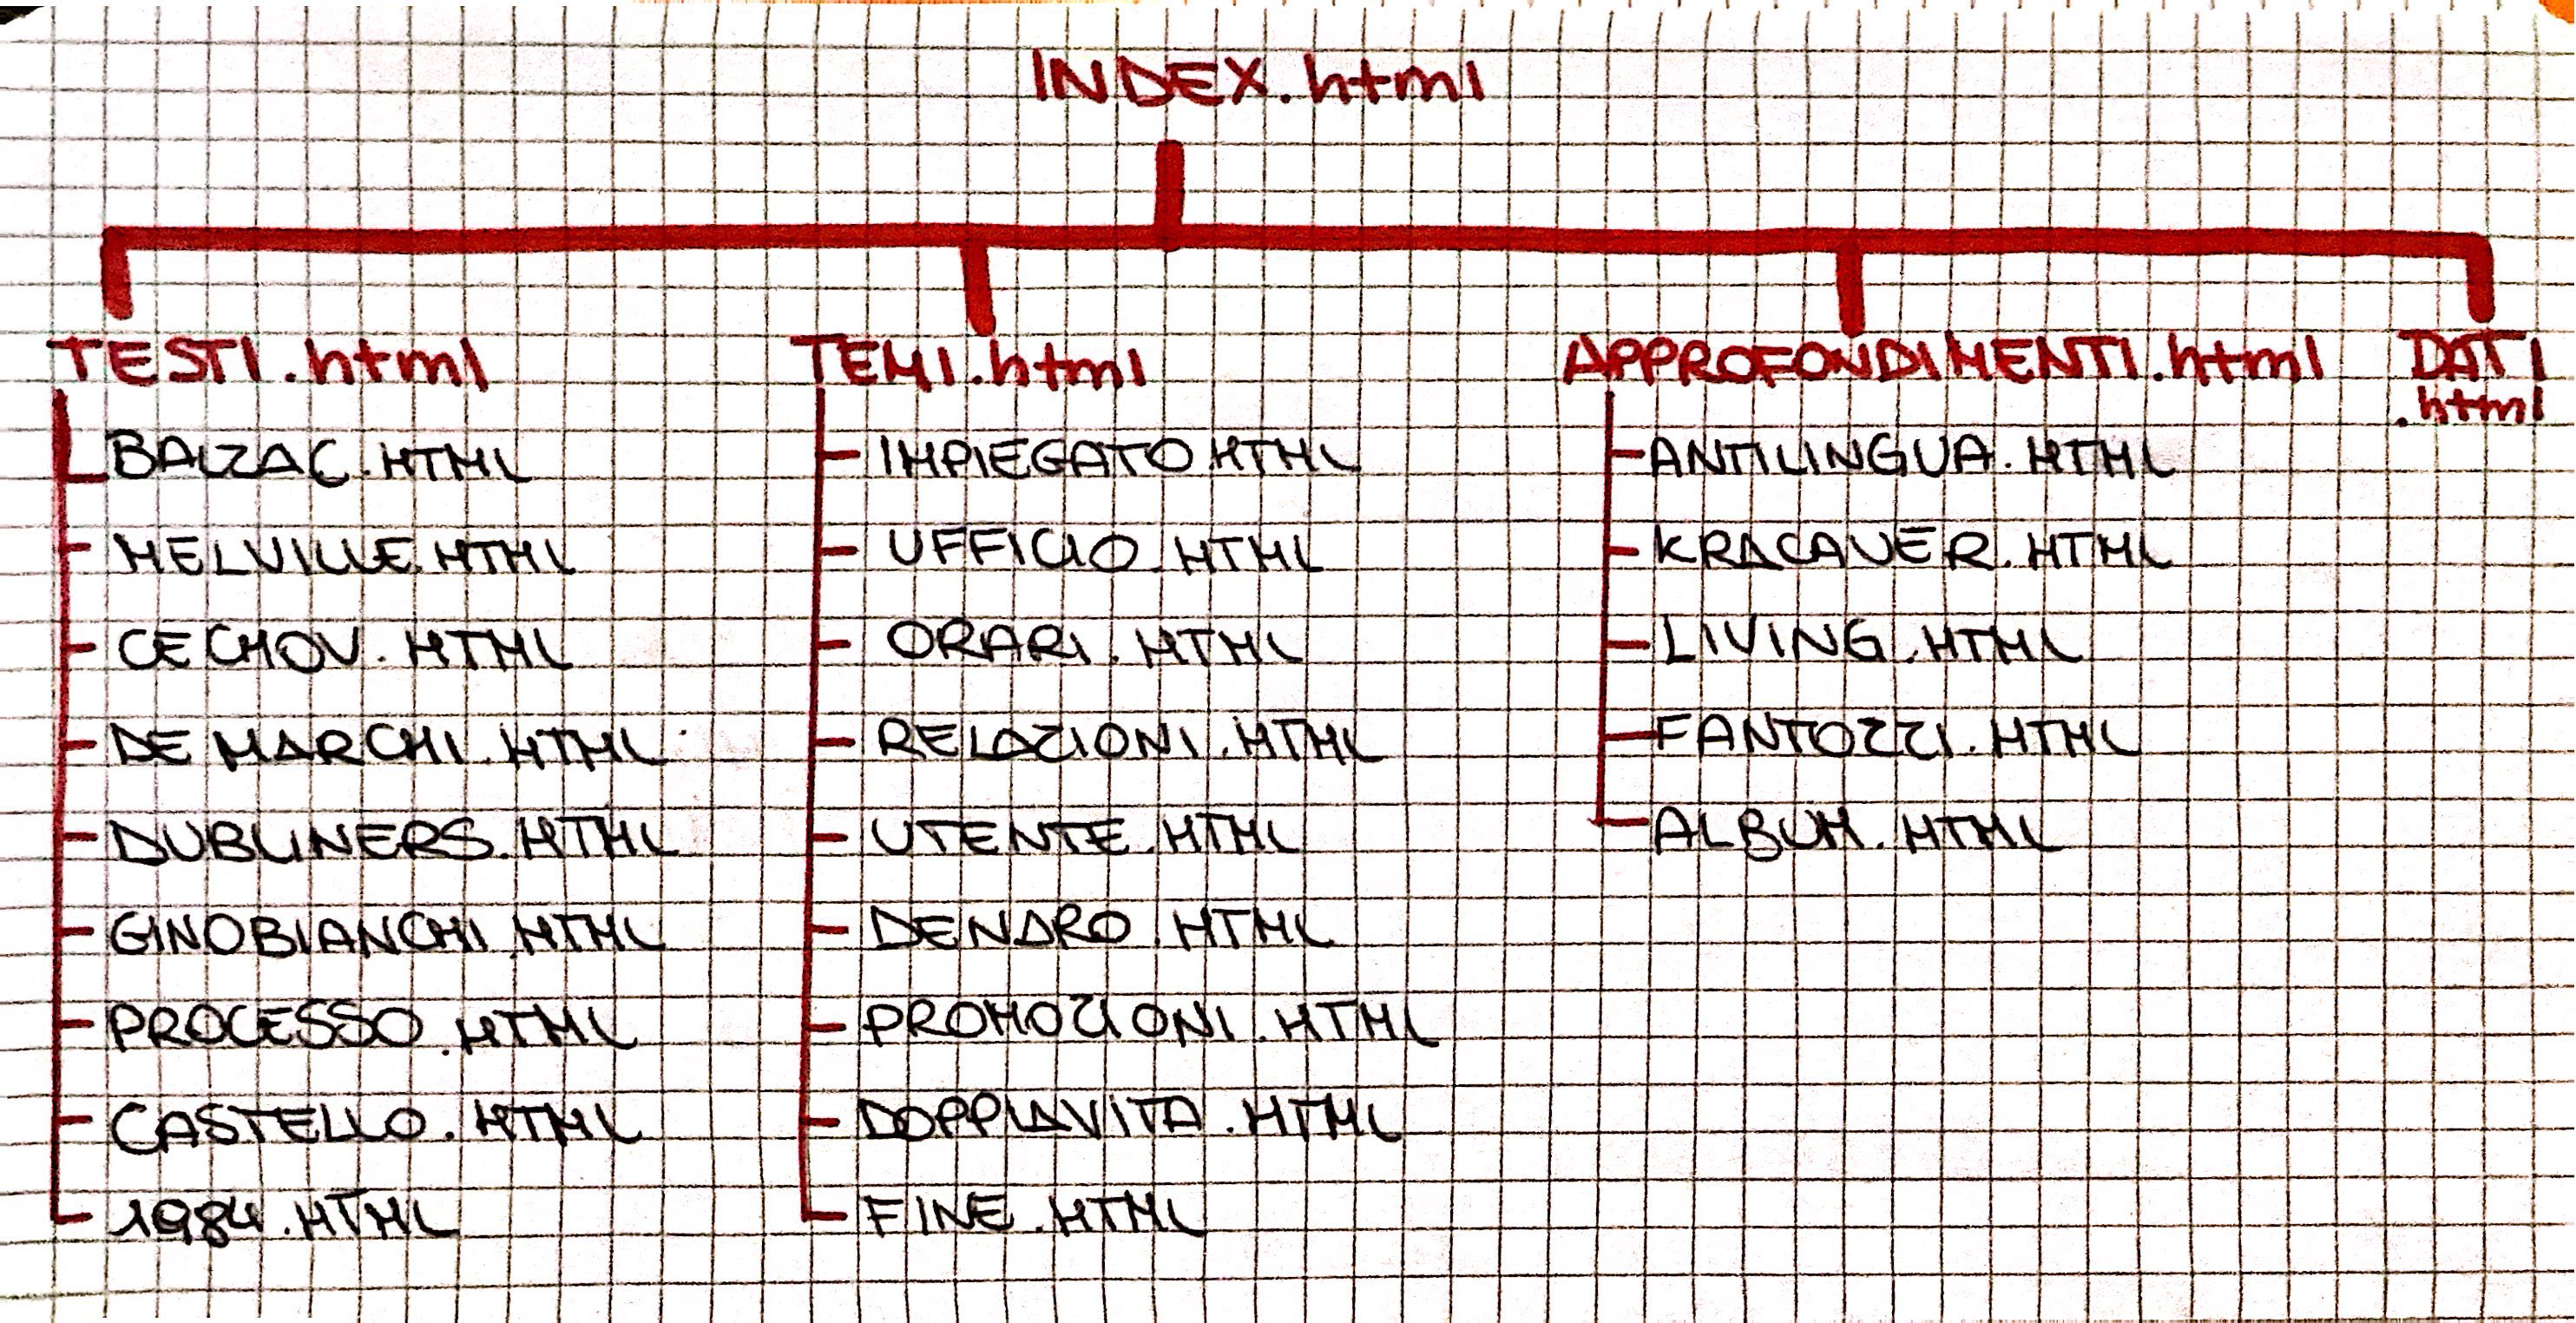 INDEX.html
TESTI.html
BALZAC.HTML
MELVILLE.HTML
CECHOV.HTML
DE MARCHI.HTML
DUBLINERS.HTML
GINOBIANCHI.HTML
PROCESSO.HTML
CASTELLO.HTML
1984.HTML
TEMI.html
IMPIEGATO.HTML
UFFICIO.HTML
ORARI.HTML
RELAZIONI.HTML
UTENTE.HTML
DENARO.HTML
PROMOZIONI.HTML
DOPPIAVITA.HTML
FINE.HTML
APPROFONDIMENTI.html
ANTILINGUA.HTML
KRACAUER.HTML
LIVING.HTML
FANTOZZI.HTML
ALBUM.HTML
DATI
.html